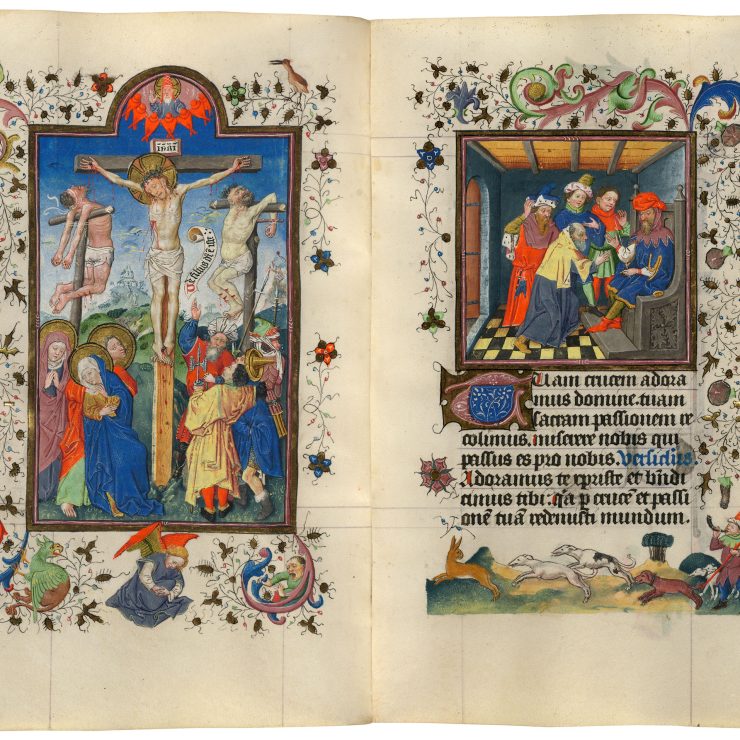 INRI
Tuam crucem adora
mus domine. tuam
sacram passionem re
colimus. miserere nobis qui
passus es pro nobis. Versiculus.
Adoramus te xpriste et bn̄di
cimus tibi: qa p crucē et passi
onē tuā redemisti mundum.